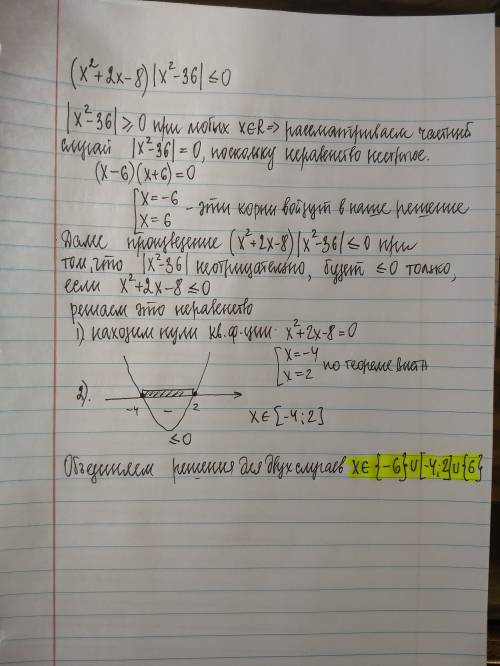 (x²+2x-8)|x²-36|≤0
|x²-36|≥0 при любых x∈R => рассматриваем частный
случай |x²-36|=0, поскольку неравенство нестрогое.
(x-6)(x+6)=0
[x=-6
[x=6 - эти корни войдут в наше решение
Далее произведение (x²+2x-8)|x²-36|≤0 при
том, что |x²-36| неотрицательно, будет ≤0 только,
если x²+2x-8≤0
решаем это неравенство
1) находим нули кв. ф-ции: x²+2x-8=0
[x=-4
[x=2 по теореме Виета
2).
-4 - 2
≤0
x∈[-4;2]
Объединяем решения для двух случаев x∈{-6}∪[-4;2]∪{6}